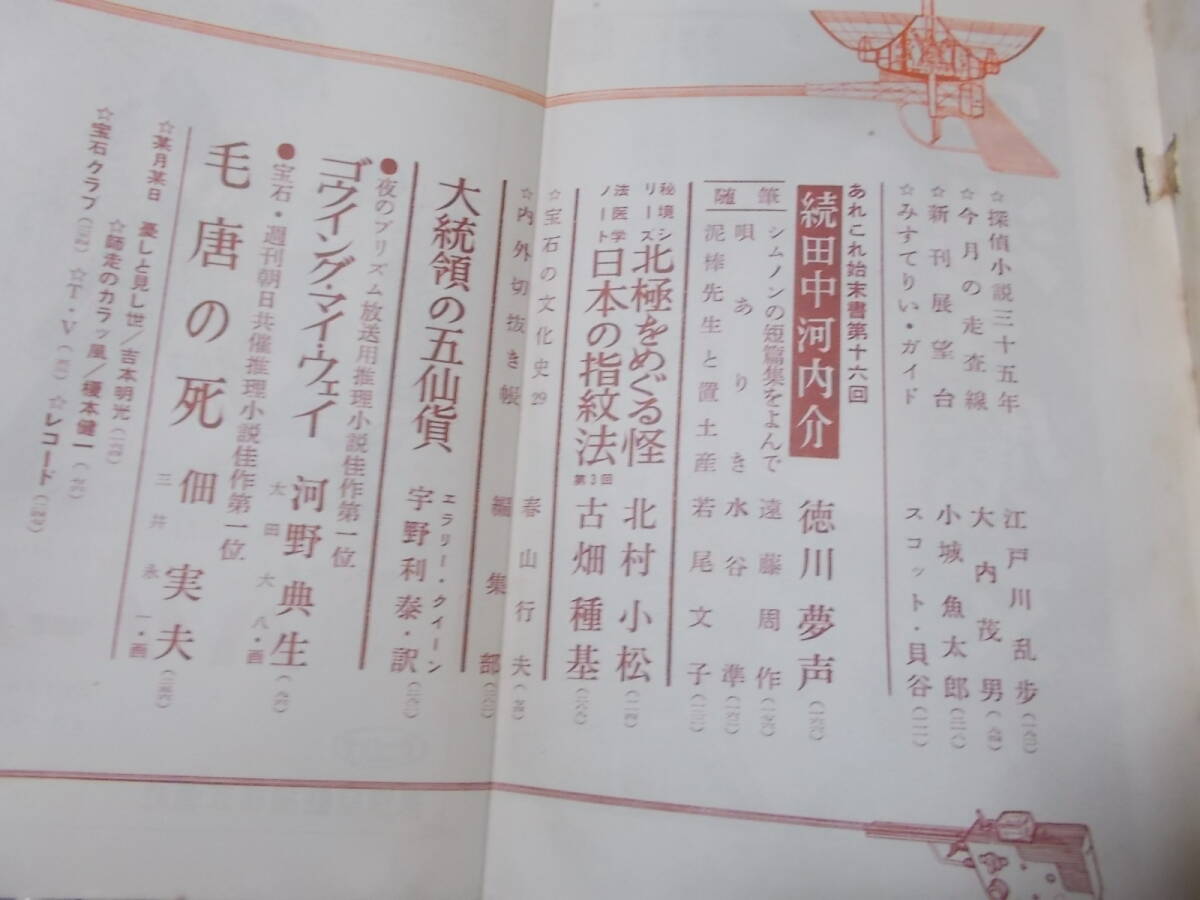 ☆探偵小説三十五年 江戸川乱歩
☆今月の走査線 大内茂男
☆新刊展望台 小城魚太郎
☆みすてりい・ガイド スコット・貝谷
あれこれ始末書第十六回
続田中河内介 徳川夢声
随筆
シムノンの短篇集をよんで 遠藤周作
唄ありき 水谷準
泥棒先生と置土産 若尾文子
秘境シリーズ 北極をめぐる怪 北村小松
法医学ノート 日本の指紋法 第3回 古畑種基
☆宝石の文化史29 春山行夫
☆内外切抜き帳 編集部
大統領の五仙貨 エラリー・クイーン 宇野利泰・訳
●夜のプリズム放送用推理小説佳作第一位
ゴウイング・マイ・ウェイ 河野典生
大田大八・画
●宝石・週刊朝日共催推理小説佳作第一位
毛唐の死 佃実夫
三井永一・画
☆某月某日 憂しと見し世/吉本明光
☆師走のカラッ風/榎本健一
☆宝石クラブ ☆T・V ☆レコード